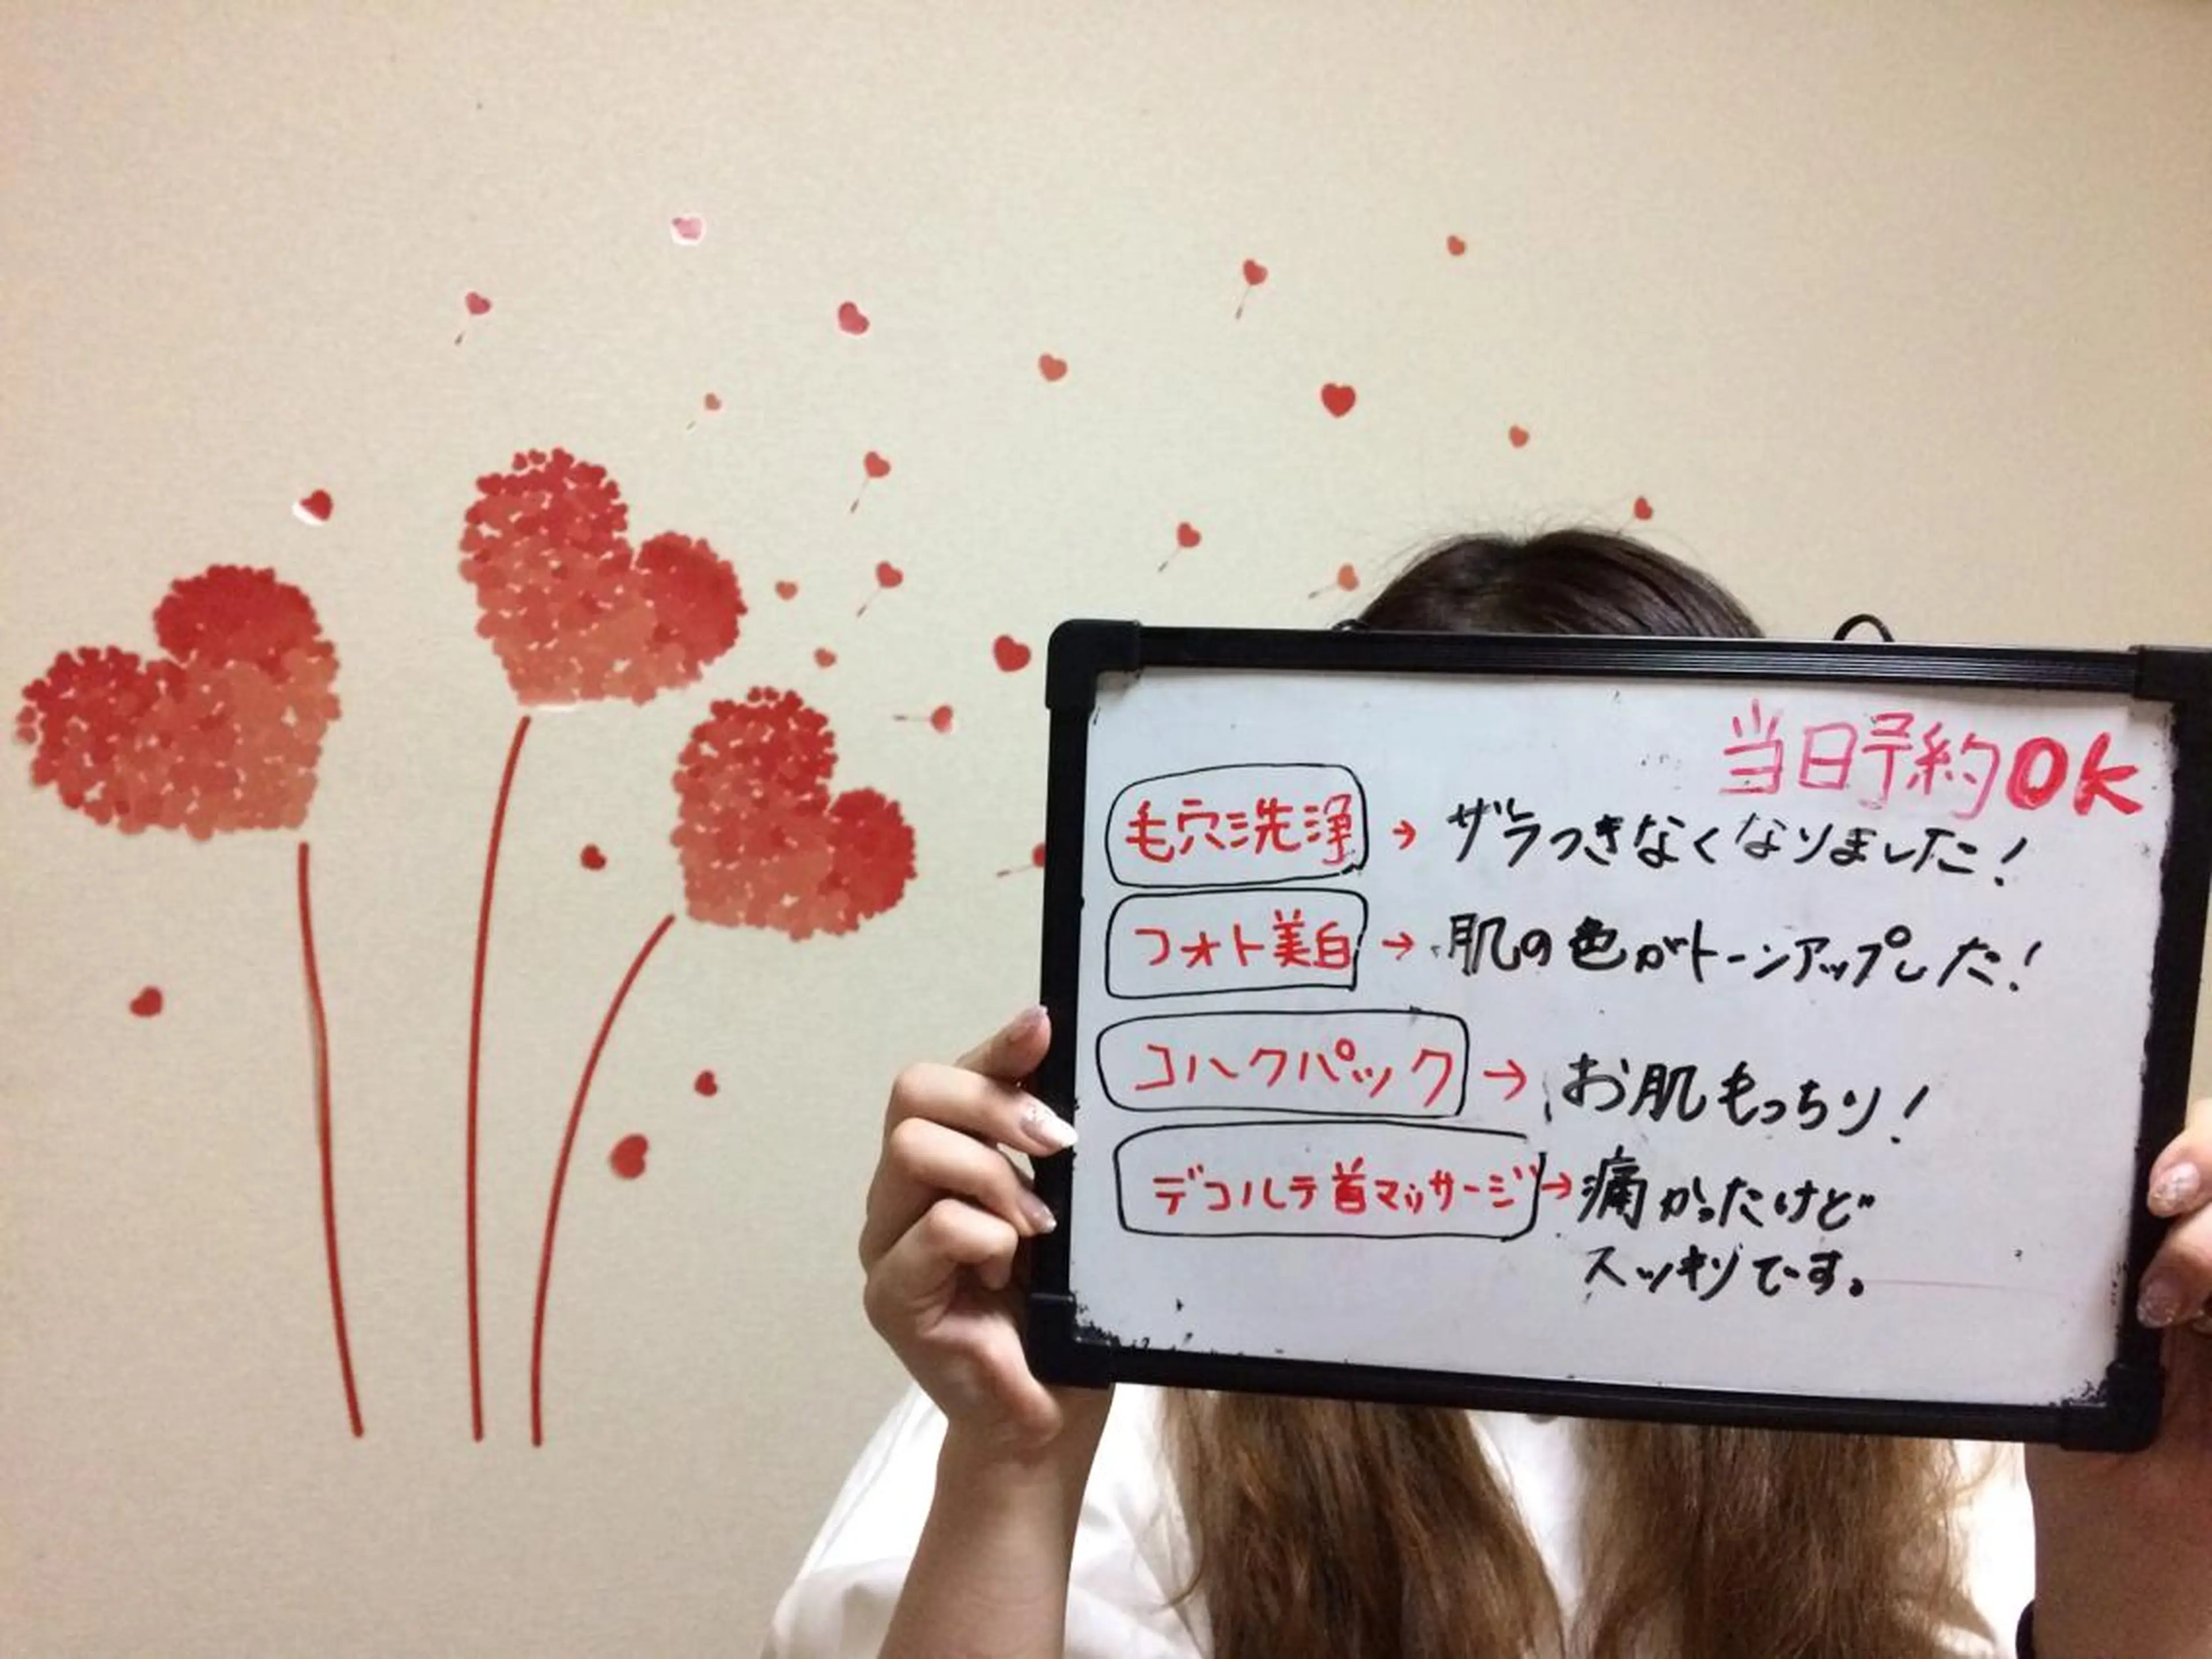 当日予約OK
毛穴洗浄 → ザラつきなくなりました!
フォト美白 → 肌の色がトーンアップした!
コハクパック → お肌もっちり!
デコルテ首マッサージ → 痛かったけど
スッキリです。